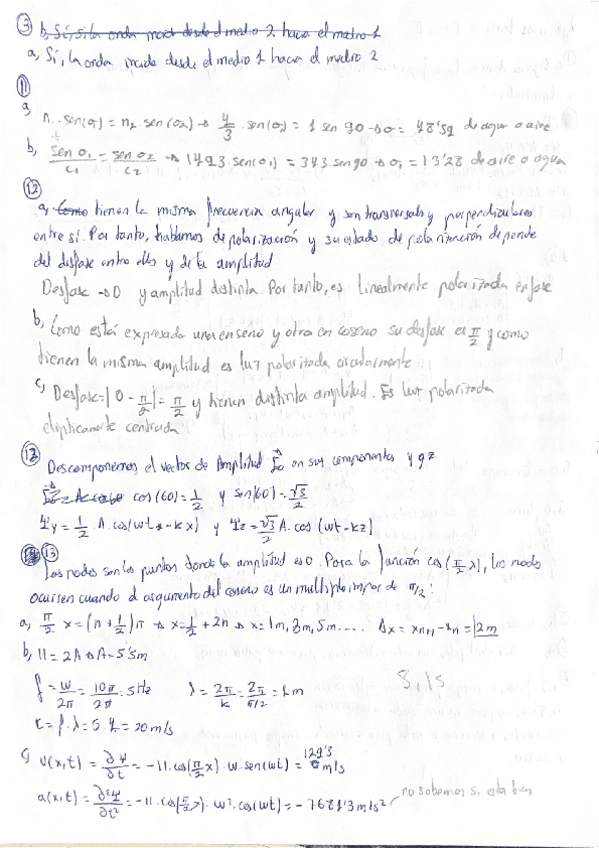 ③ b, Sí, si la onda incide desde el medio 2 hacia el medio 1
a, Sí, la onda incide desde el medio 1 hacia el medio 2
⑪
a, n₁ · sen(θ₁) = n₂ sen(θ₂) → 4/3 · sen(θ₁) = 1 sen 90 → θ = 48'59 de agua a aire
b, sen θ₁/c₁ = sen θ₂/c₂ → 1493 · sen(θ₁) = 343 · sen 90 → θ₁ = 13'28 de aire a agua
⑫
a, Como tienen la misma frecuencia angular y son transversales y perpendiculares
entre sí. Por tanto, hablamos de polarización y su estado de polarización depende
del desfase entre ellos y de la amplitud
Desfase → 0 y amplitud distinta. Por tanto, es linealmente polarizada en fase
b, Como está expresada una en seno y otra en coseno su desfase es π/2 y como
tienen la misma amplitud es luz polarizada circularmente
c, Desfase = |0 - π/2| = π/2 y tienen distinta amplitud. Es luz polarizada
elípticamente centrada
⑫ Descomponemos el vector de Amplitud E₀ en sus componentes y q z
cos(60) = 1/2 y sen(60) = √3/2
Ψy = 1/2 · A · cos(wt - kx) y Ψz = √3/2 A · cos (wt - kz)
⑬
Los nodos son los puntos donde la amplitud es 0. Para la función cos(π/2 x), los nodos
ocurren cuando el argumento del coseno es un multiplo impar de π/2:
a, π/2 x = (n + 1/2)π → x = 1/2 + 2n → x = 1m, 3m, 5m.... Δx = xₙ₊₁ - xₙ = 2m
b, 11 = 2A → A = 5'5m
f = w/2π = 10π/2π = 5 Hz λ = 2π/k = 2π/π/2 = 4m
c = f · λ = 5 · 4 = 20 m/s
8,15
c, v(x,t) = ∂Ψ/∂t = -11 · cos(π/2 x) · w · sen(wt) = 129'3 m/s
a(x,t) = ∂²Ψ/∂t² = -11 · cos(π/2 x) · w² · cos(wt) = -7681'3 m/s² no sabemos si esta bien